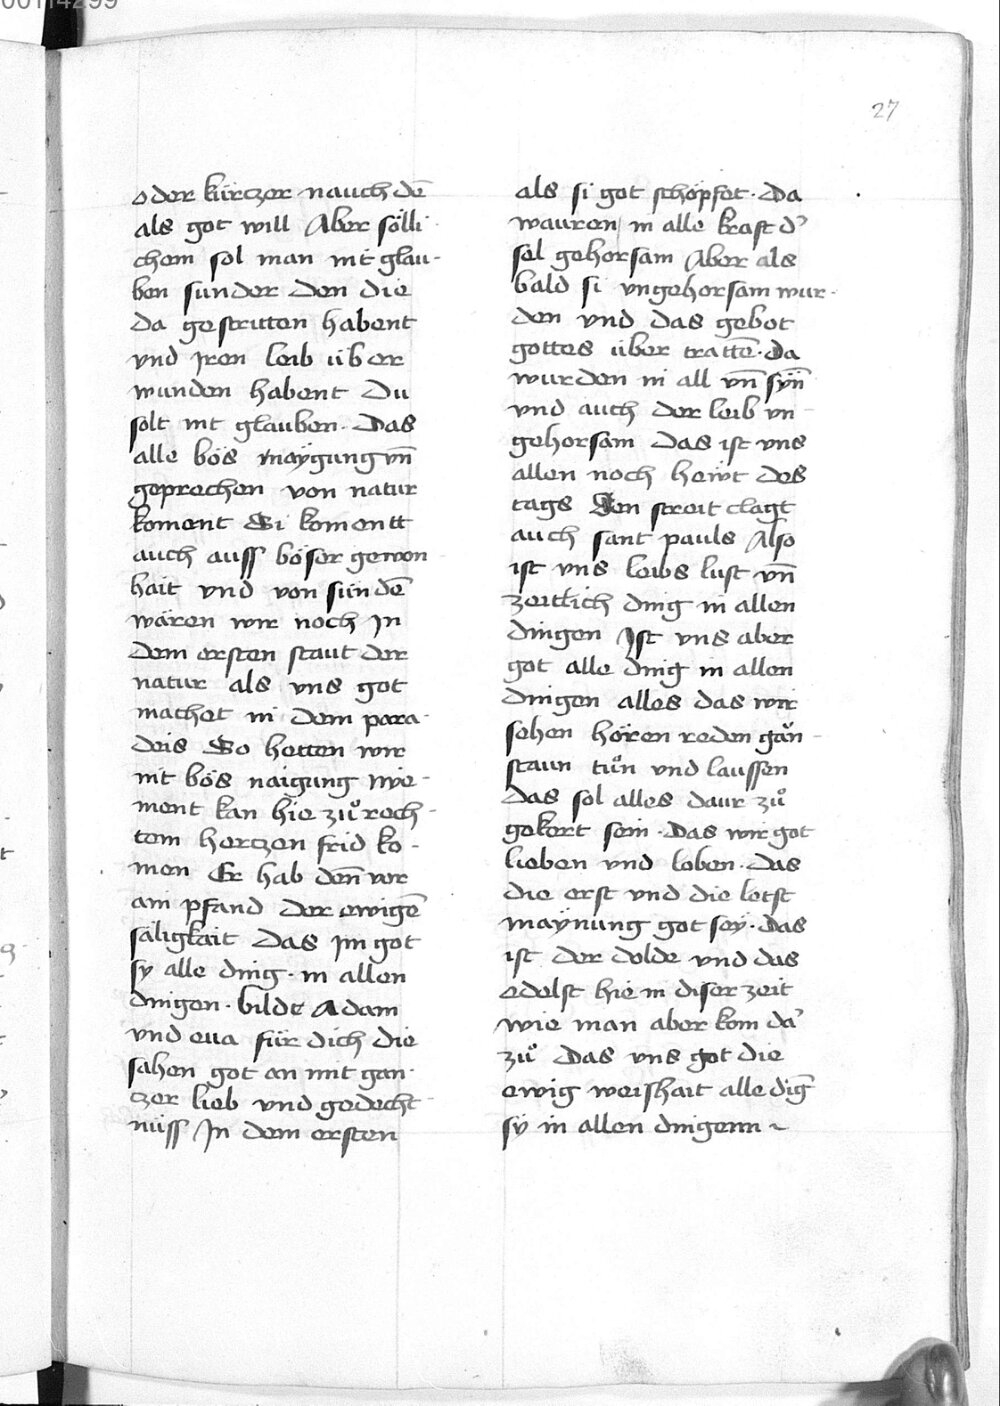 00114299
27
oder kürczer nauch dē
als got will Aber sölli
chem sol man nit glau-
ben sunder den die
da gestritten habent
vnd iren leib über
wunden habent Du
solt nit glauben. Das
alle bös naÿgung vn̄
geprechen von natur
koment Si komentt
auch auss böser gewon
hait vnd von sündē
wären wir noch In
dem ersten staut der
natur als vns got
machet in dem para-
deis So hetten wir
nit bös naigung nye-
ment kan hie zuͦ rech-
tem herczen frid ko-
men Er hab deñ vor
ain pfand der ewigē
säligkait Das im got
sy alle ding. in allen
dingen. bildt Adam
vnd eua für dich die
sahen got an mit gan-
czer lieb vnd gedecht
nuss In dem ersten
als si got schöpfet. Da
wauren in alle kraft d'
sel gehorsam Aber als
bald si vngehorsam wur-
den vnd das gebot
gottes über trattē. da
wurden in all vn̄ syn̄
vnd auch der leib vn-
gehorsam Das ist vns
allen noch hewt des
tags Den streit clagt
auch sant pauls Also
ist vns leibs lust vn̄
zeitlich ding in allen
dingen Ist vns aber
got alle ding in allen
dingen alles das wir
sehen hören reden gän-
staun tuͦn vnd laussen
Das sol alles daur zuͦ
gekert sein. Das wir got
lieben vnd loben. Das
die erst vnd die letst
maÿnung got seÿ. Das
ist der dolde vnd das
edelst hie in diser zeit
wie man aber kom da'
zuͦ Das vns got die
ewig weishait alle diḡ
sÿ in allen dingenn ~